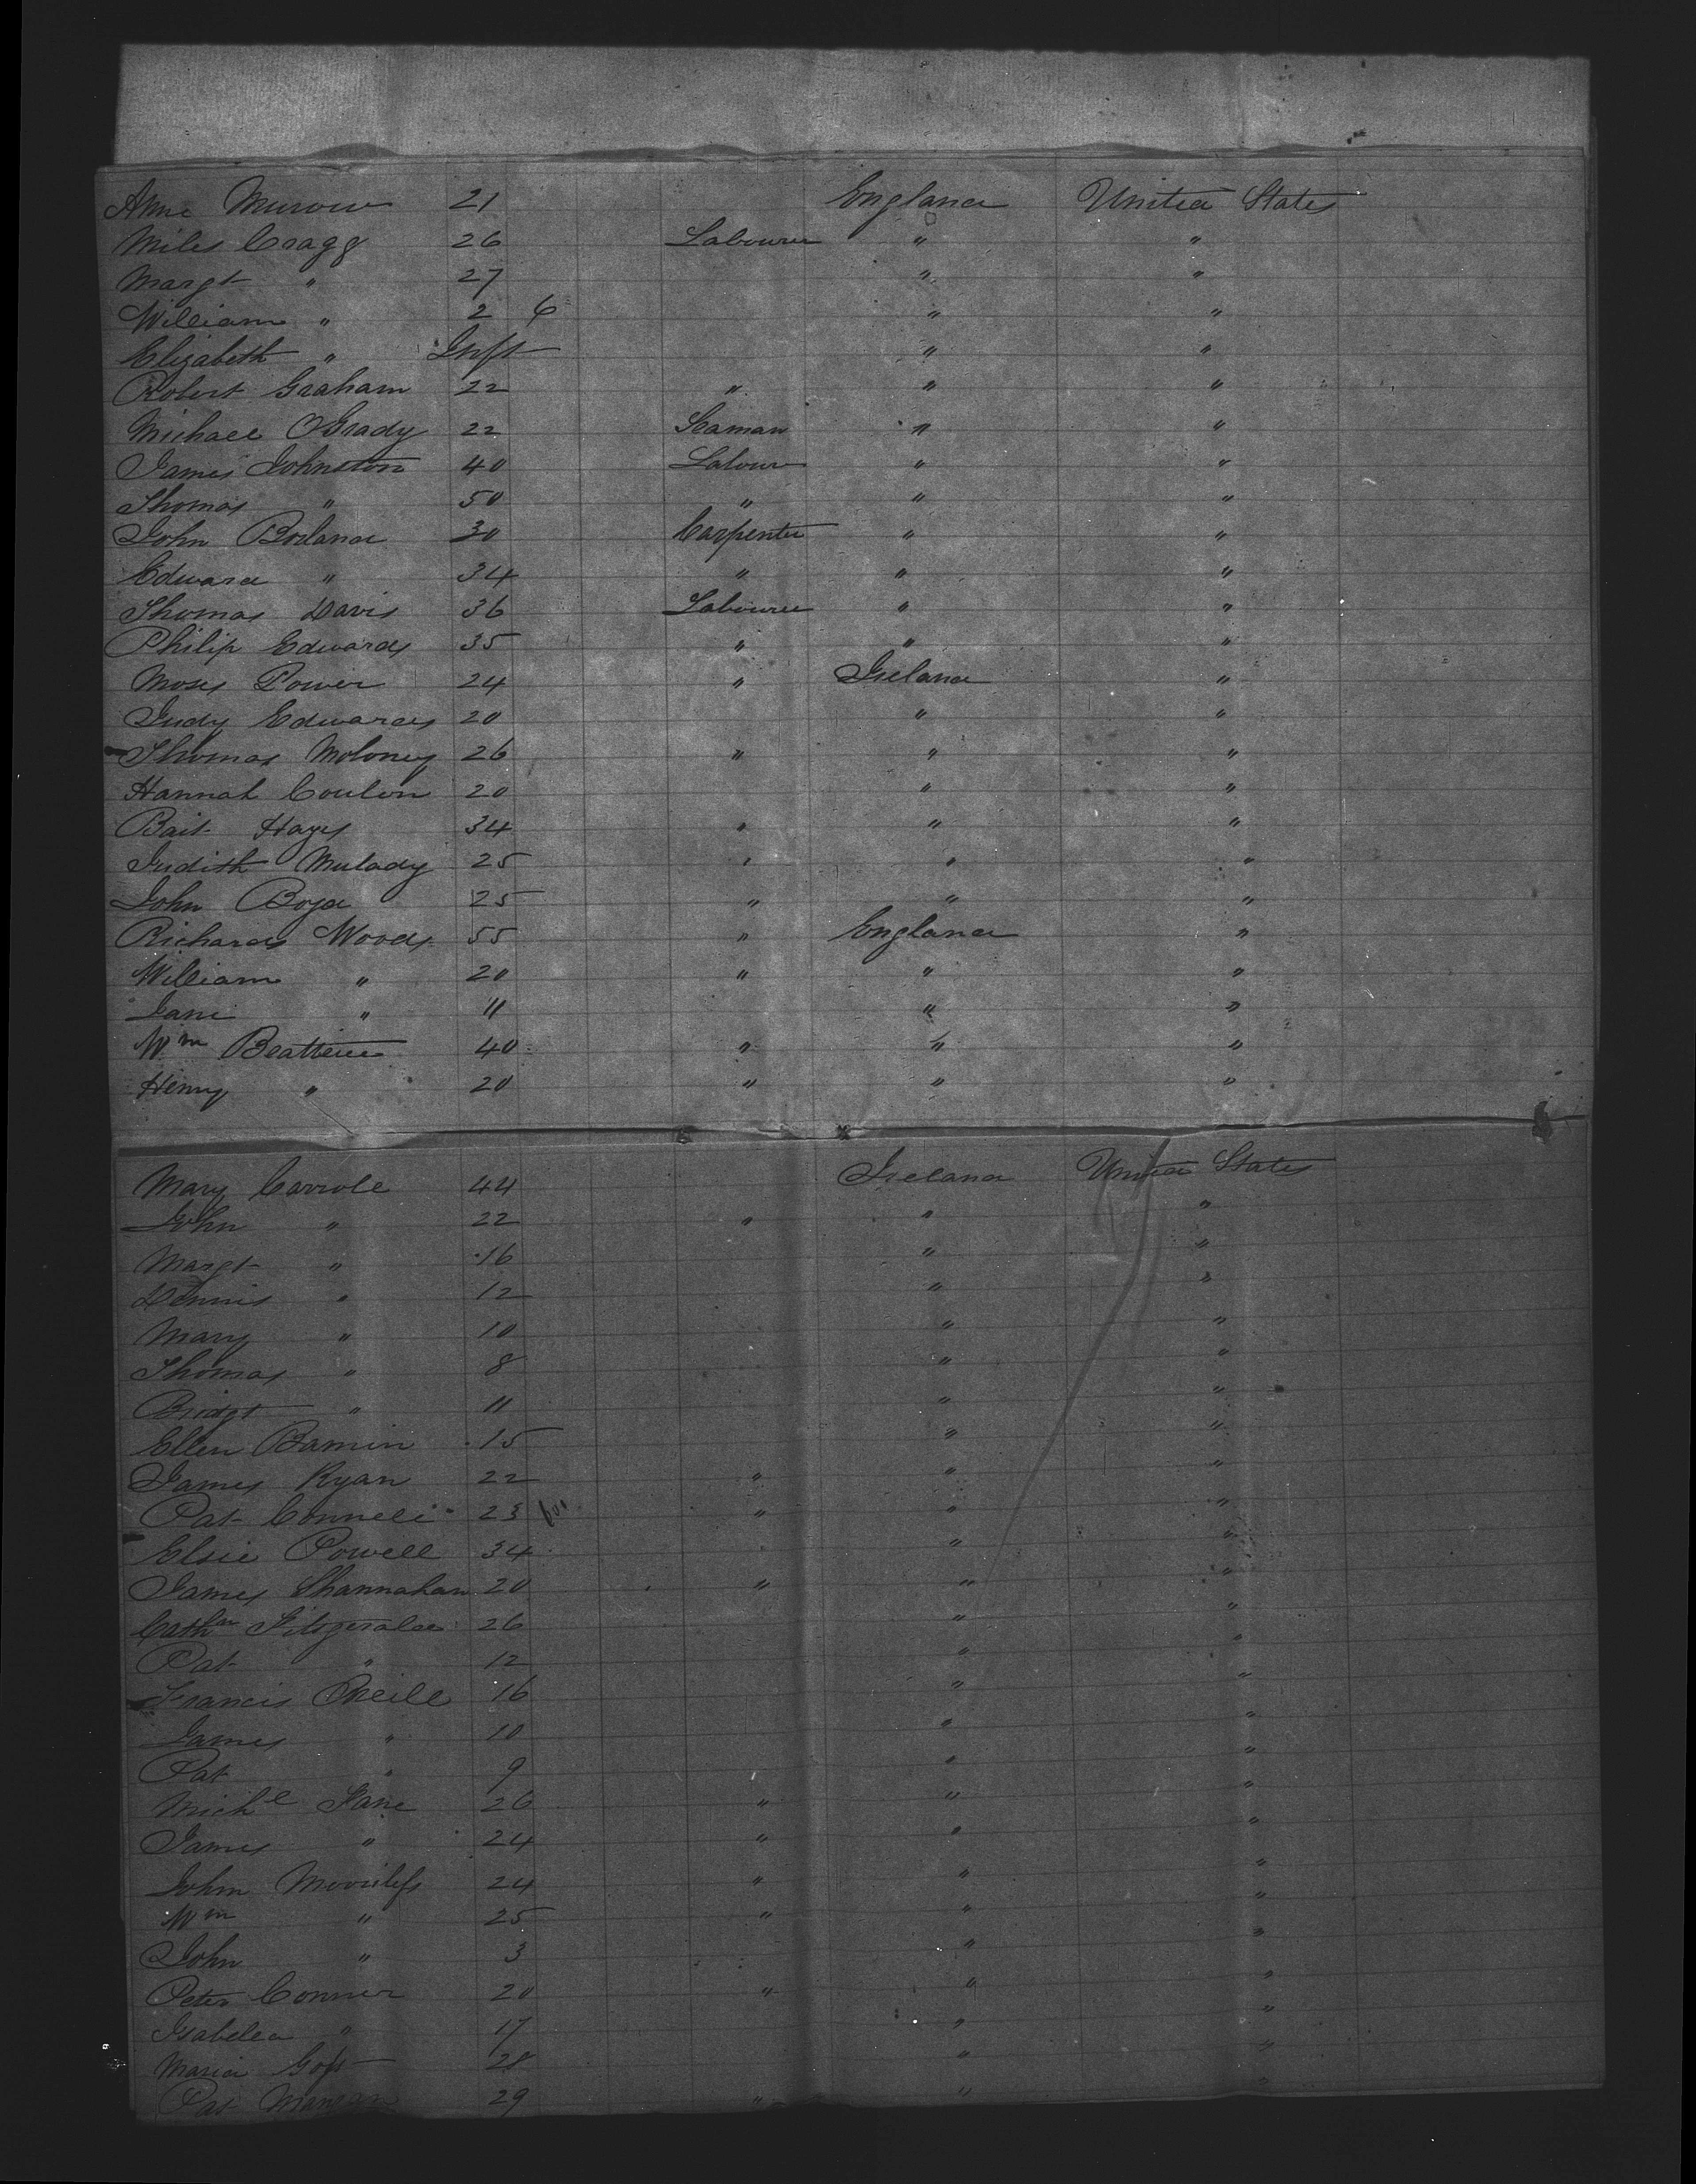 Anne Murow 21 England United States
Miles Cragg 26 Labourer " "
Margt " 27 " "
William " 2 6 " "
Elizabeth " Inft " "
Robert Graham 22 " " "
Michael OGrady 22 Seaman " "
James Johnston 40 Labour " "
Thomas " 50 " " "
John Borland 30 Carpenter " "
Edward " 34 " " "
Thomas Davis 36 Labourer " "
Philip Edwards 35 " " "
Moses Power 24 " Ireland "
Judy Edwards 20 " "
Thomas Moloney 26 " " "
Hannah Conlon 20 " "
Bait Hays 34 " " "
Judith Mulady 25 " " "
John Boyd 25 " " "
Richard Woods 55 " England "
William " 20 " " "
Jane " 11 " "
Wm Beattie 40 " " "
Henry " 20 " " "
Mary Carroll 44 Ireland United States
John " 22 " " "
Margt " 16 " "
Dennis " 12 " "
Mary " 10 " "
Thomas " 8 " "
Bridgt " 11 " "
Ellen Bamin 15 " "
James Ryan 22 " " "
Pat Connell 23 " " "
Elsie Powell 34 " "
James Shannahan 20 " " "
Cathn Fitzgerald 26 " "
Pat " 12 " "
Francis ONeill 16 " "
James " 10 " "
Pat " 9 " "
Michl Jane 26 " " "
James " 24 " " "
John 24 " " "
Wm " 25 " " "
John " 3 " "
Peter Conner 20 " " "
Isabella " 17 " "
Maria Goff 28 " "
Pat 29 " " "